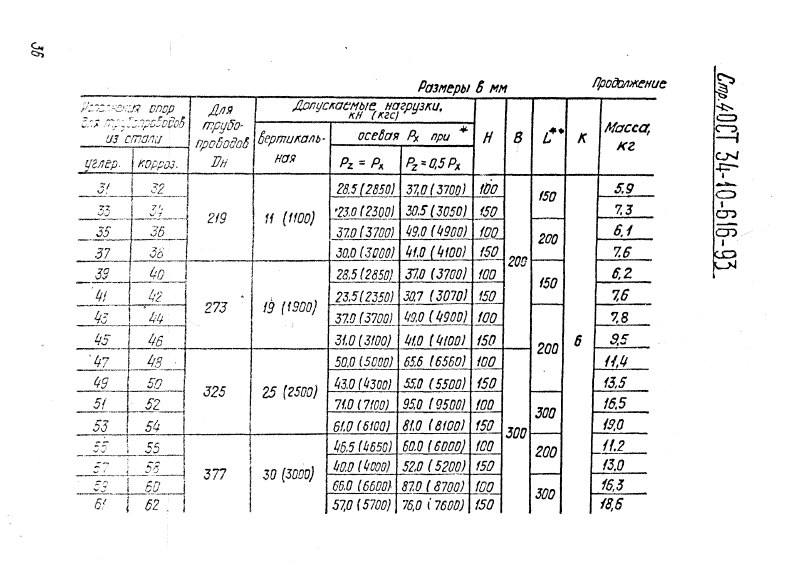 36
Стр. 4 ОСТ 34-10-616-93
Размеры в мм
Продолжение
Исполнения опор для трубопроводов из стали
Для трубопроводов Dн
Допускаемые нагрузки, кН (кгс)
H
B
L**
K
Масса, кг
вертикальная
осевая Px при *
углер.
корроз.
Pz = Px
Pz = 0,5 Px
31 32 219 11 (1100) 28.5 (2850) 37,0 (3700) 100 200 150 6 5.9
33 34 23.0 (2300) 30.5 (3050) 150 7,3
35 36 37.0 (3700) 49.0 (4900) 100 200 6,1
37 38 30.0 (3000) 41.0 (4100) 150 7.6
39 40 273 19 (1900) 28.5 (2850) 37.0 (3700) 100 150 6,2
41 42 23.5 (2350) 30.7 (3070) 150 7,6
43 44 37.0 (3700) 49.0 (4900) 100 200 7,8
45 46 31.0 (3100) 41.0 (4100) 150 9,5
47 48 325 25 (2500) 50,0 (5000) 65.6 (6560) 100 300 11,4
49 50 43.0 (4300) 55.0 (5500) 150 13,5
51 52 71.0 (7100) 95.0 (9500) 100 300 16,5
53 54 61.0 (6100) 81.0 (8100) 150 19,0
55 56 377 30 (3000) 46.5 (4650) 60.0 (6000) 100 200 11.2
57 58 40.0 (4000) 52.0 (5200) 150 13,0
59 60 66.0 (6600) 87.0 (8700) 100 300 16,3
61 62 57,0 (5700) 76,0 (7600) 150 18,6